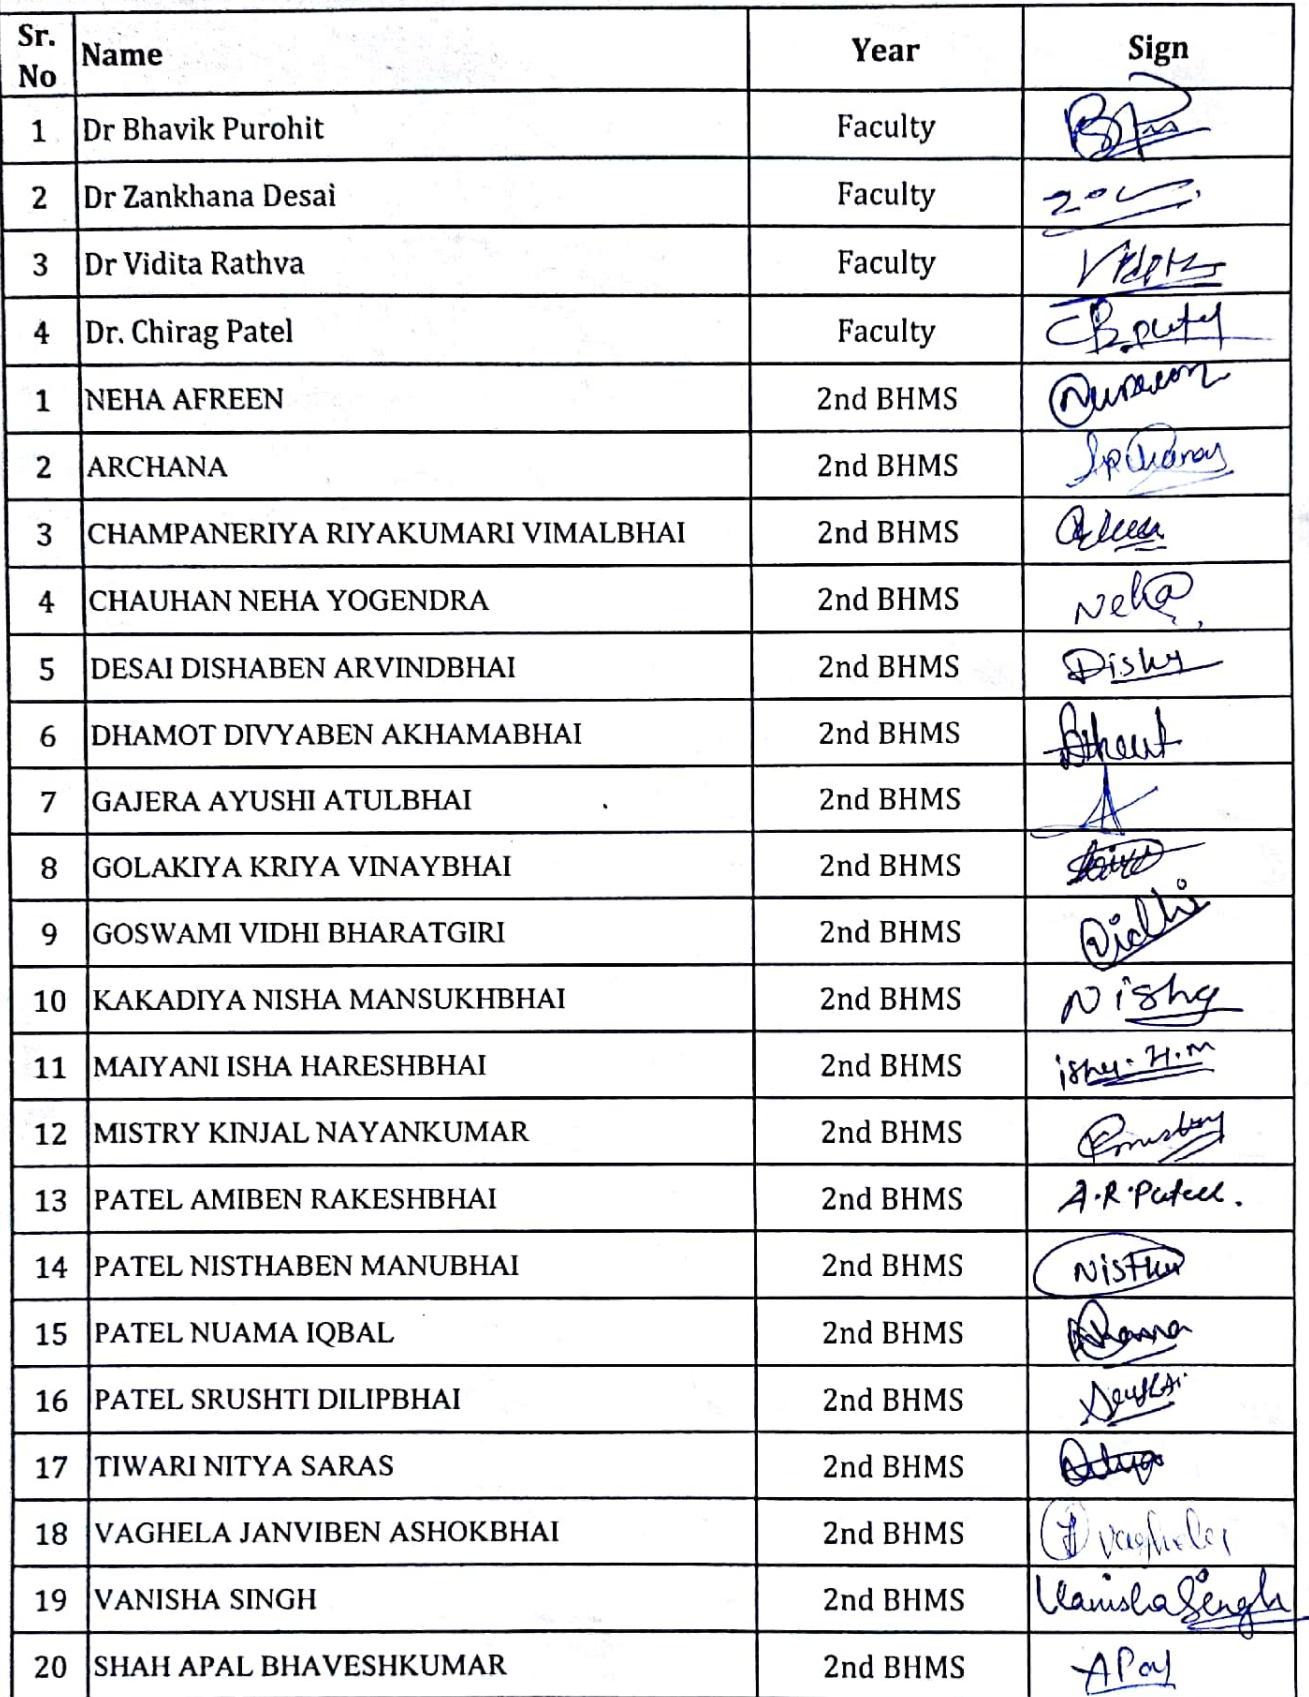 Sr. No Name Year Sign
1 Dr Bhavik Purohit Faculty
2 Dr Zankhana Desai Faculty
3 Dr Vidita Rathva Faculty
4 Dr. Chirag Patel Faculty
1 NEHA AFREEN 2nd BHMS
2 ARCHANA 2nd BHMS
3 CHAMPANERIYA RIYAKUMARI VIMALBHAI 2nd BHMS
4 CHAUHAN NEHA YOGENDRA 2nd BHMS Neha
5 DESAI DISHABEN ARVINDBHAI 2nd BHMS
6 DHAMOT DIVYABEN AKHAMABHAI 2nd BHMS
7 GAJERA AYUSHI ATULBHAI 2nd BHMS
8 GOLAKIYA KRIYA VINAYBHAI 2nd BHMS
9 GOSWAMI VIDHI BHARATGIRI 2nd BHMS Vidhi
10 KAKADIYA NISHA MANSUKHBHAI 2nd BHMS Nisha
11 MAIYANI ISHA HARESHBHAI 2nd BHMS
12 MISTRY KINJAL NAYANKUMAR 2nd BHMS
13 PATEL AMIBEN RAKESHBHAI 2nd BHMS A.R.Patel.
14 PATEL NISTHABEN MANUBHAI 2nd BHMS
15 PATEL NUAMA IQBAL 2nd BHMS
16 PATEL SRUSHTI DILIPBHAI 2nd BHMS
17 TIWARI NITYA SARAS 2nd BHMS
18 VAGHELA JANVIBEN ASHOKBHAI 2nd BHMS
19 VANISHA SINGH 2nd BHMS Vanisha Singh
20 SHAH APAL BHAVESHKUMAR 2nd BHMS